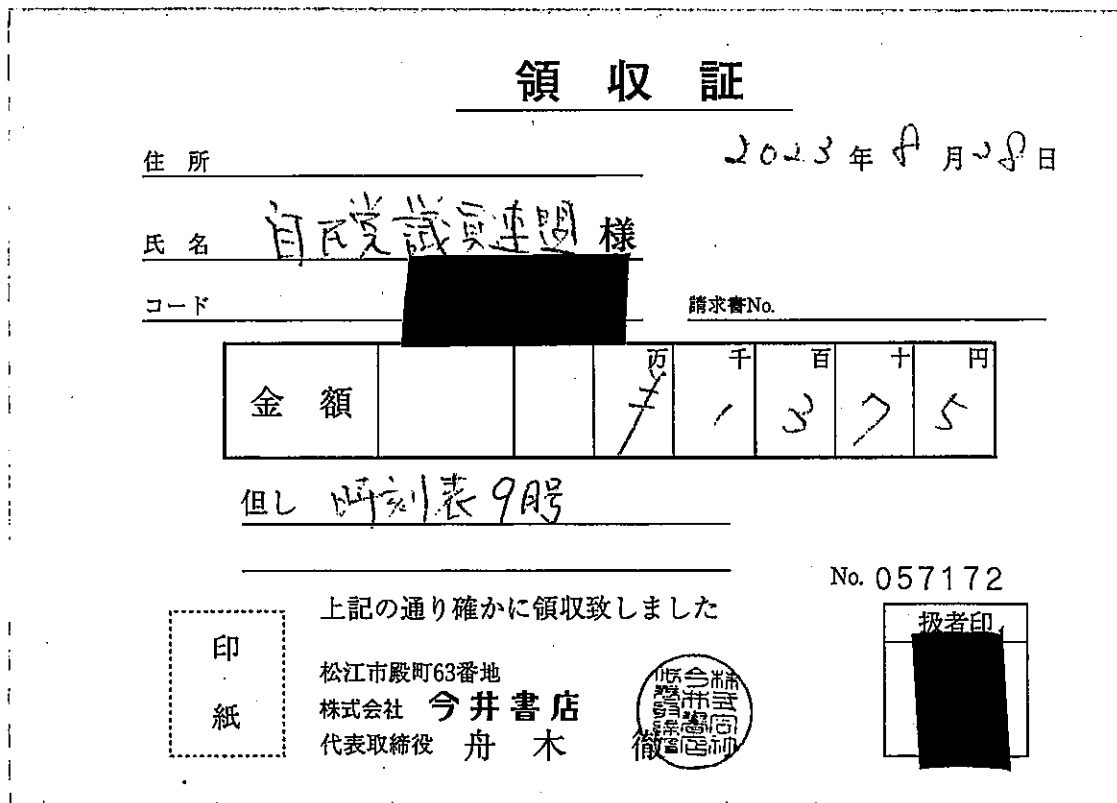 領収証
住所
2023年8月28日
氏名 自民党議員連盟 様
コード
請求書No.
金額 万 千 百 十 円
¥ 1 3 7 5
但し 時刻表9月号
No. 057172
上記の通り確かに領収致しました
扱者印
印紙
松江市殿町63番地
株式会社 今井書店
代表取締役 舟木 徹